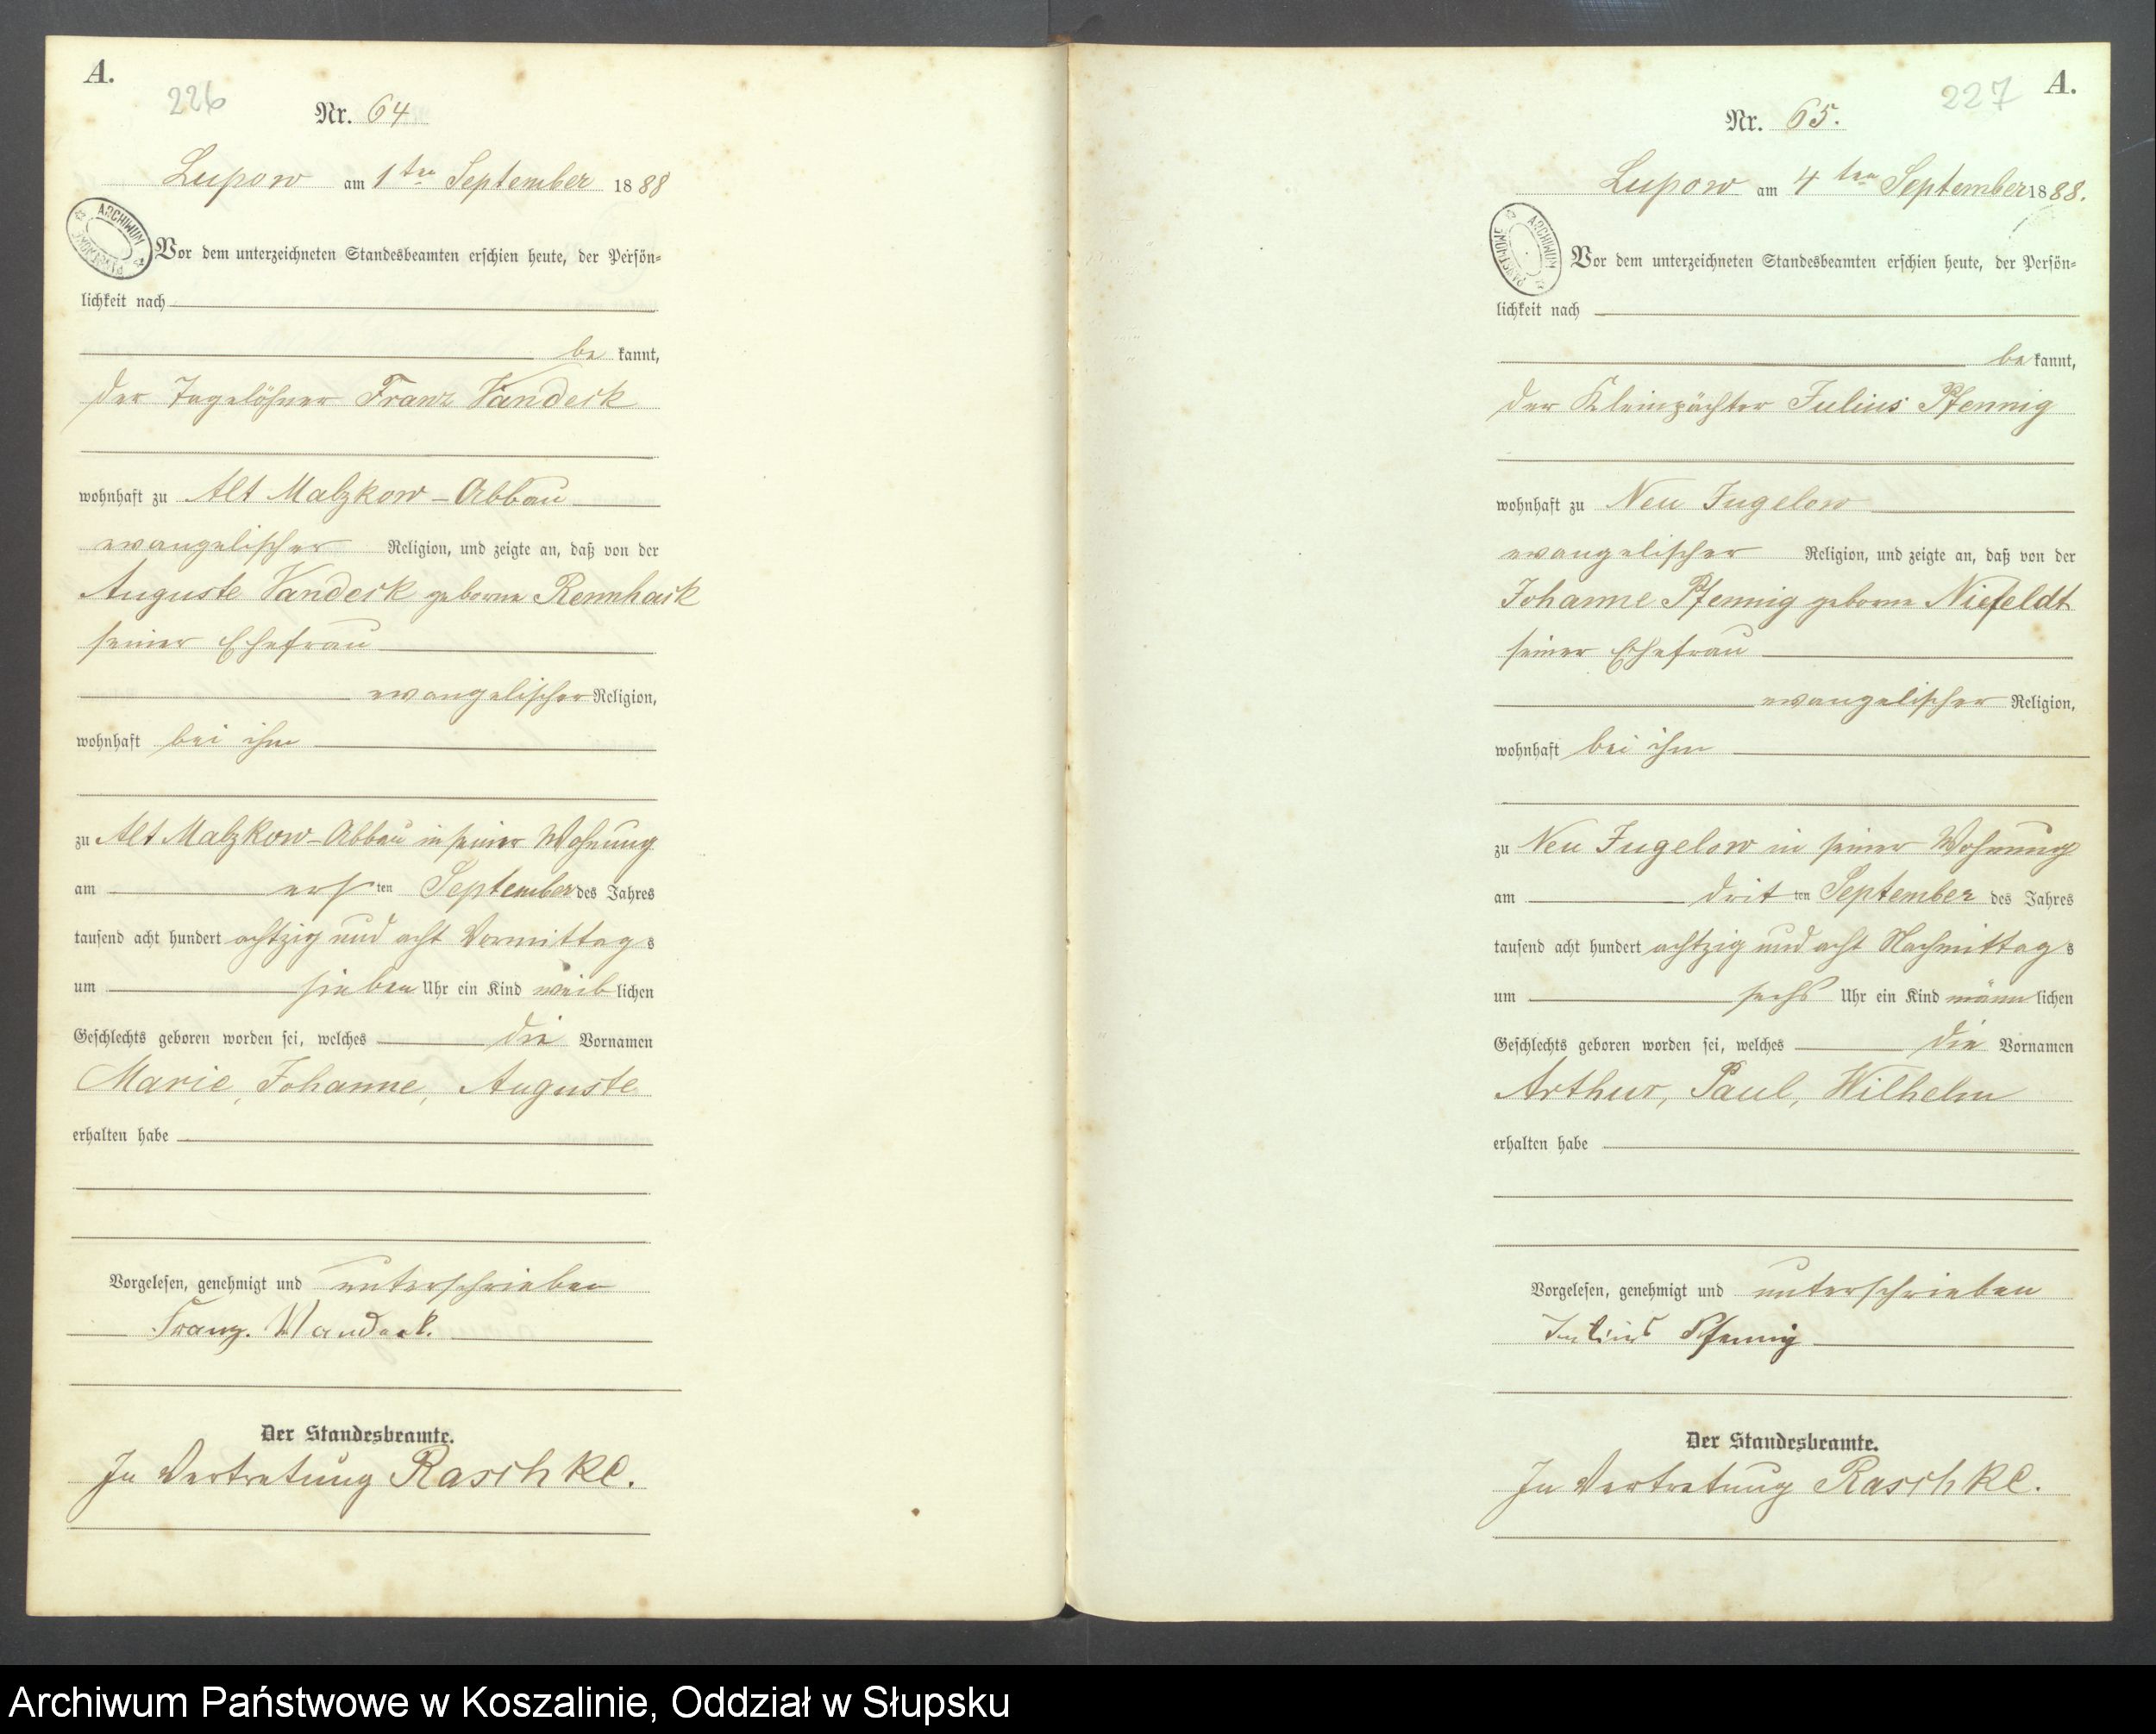 A.
226
Nr. 64
Lupow am 1ten September 1888
ARCHIWUM PAŃSTWOWE
Vor dem unterzeichneten Standesbeamten erschien heute, der Persön=
lichkeit nach
be kannt,
der Tagelöhner Franz Vandeck
wohnhaft zu Alt Malzkow - Abbau
evangelischer Religion, und zeigte an, daß von der
Auguste Vandeck geborne Rennhack
seiner Ehefrau
evangelischer Religion,
wohnhaft bei ihm
zu Alt Malzkow - Abbau in seiner Wohnung
am ersten September des Jahres
tausend acht hundert achtzig und acht Vormittags
um sieben Uhr ein Kind weiblichen
Geschlechts geboren worden sei, welches die Vornamen
Marie, Johanne, Auguste
erhalten habe
Vorgelesen, genehmigt und unterschrieben
Franz. Wandeck.
Der Standesbeamte.
In Vertretung Raschke.
227
A.
Nr. 65.
Lupow am 4ten September 1888.
ARCHIWUM PAŃSTWOWE
Vor dem unterzeichneten Standesbeamten erschien heute, der Persön=
lichkeit nach
be kannt,
der Kleinpächter Julius Pfennig
wohnhaft zu Neu Jugelow
evangelischer Religion, und zeigte an, daß von der
Johanne Pfennig geborne Niefeldt
seiner Ehefrau
evangelischer Religion,
wohnhaft bei ihm
zu Neu Jugelow in seiner Wohnung
am dritten September des Jahres
tausend acht hundert achtzig und acht Nachmittags
um sechs Uhr ein Kind männlichen
Geschlechts geboren worden sei, welches die Vornamen
Arthur, Paul, Wilhelm
erhalten habe
Vorgelesen, genehmigt und unterschrieben
Julius Pfennig
Der Standesbeamte.
In Vertretung Raschke.
Archiwum Państwowe w Koszalinie, Oddział w Słupsku